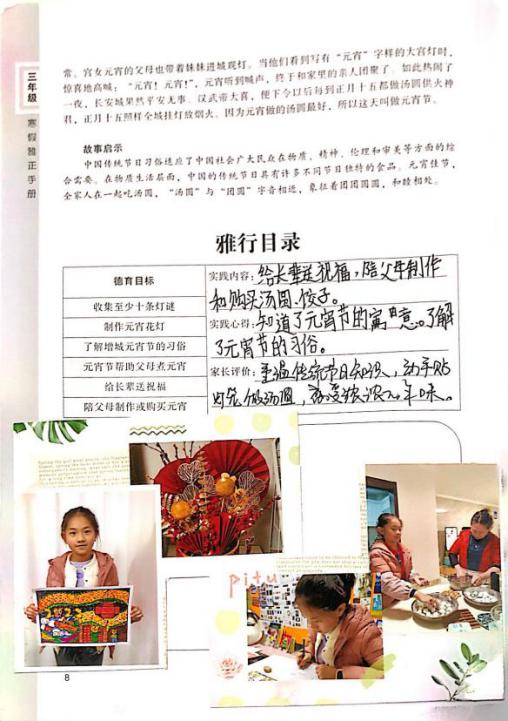 常。宫女元宵的父母也带着妹妹进城观灯。当他们看到写有“元宵”字样的大宫灯时，
惊喜地高喊：“元宵！元宵！”，元宵听到喊声，终于和家里的亲人团聚了。如此热闹了
一夜，长安城果然平安无事。汉武帝大喜，便下令以后每到正月十五都做汤圆供火神
君，正月十五照样全城挂灯放烟火。因为元宵做的汤圆最好，所以这天叫做元宵节。
故事启示
中国传统节日习俗适应了中国社会广大民众在物质、精神、伦理和审美等方面的综
合需要。在物质生活层面，中国的传统节日具有许多不同节日独特的食品。元宵佳节，
全家人在一起吃汤圆，“汤圆”与“团圆”字音相近，象征着团团圆圆，和睦相处。
三年级
寒假雅正手册
雅行目录
德育目标
收集至少十条灯谜
制作元宵花灯
了解增城元宵节的习俗
元宵节帮助父母煮元宵
给长辈送祝福
陪父母制作或购买元宵
实践内容：给长辈送祝福，陪父母制作
和购买汤圆、饺子。
实践心得：知道了元宵节的寓意。了解
了元宵节的习俗。
家长评价：重温传统节日知识，动手
做汤圆，感受浓浓年味。
pitu
8